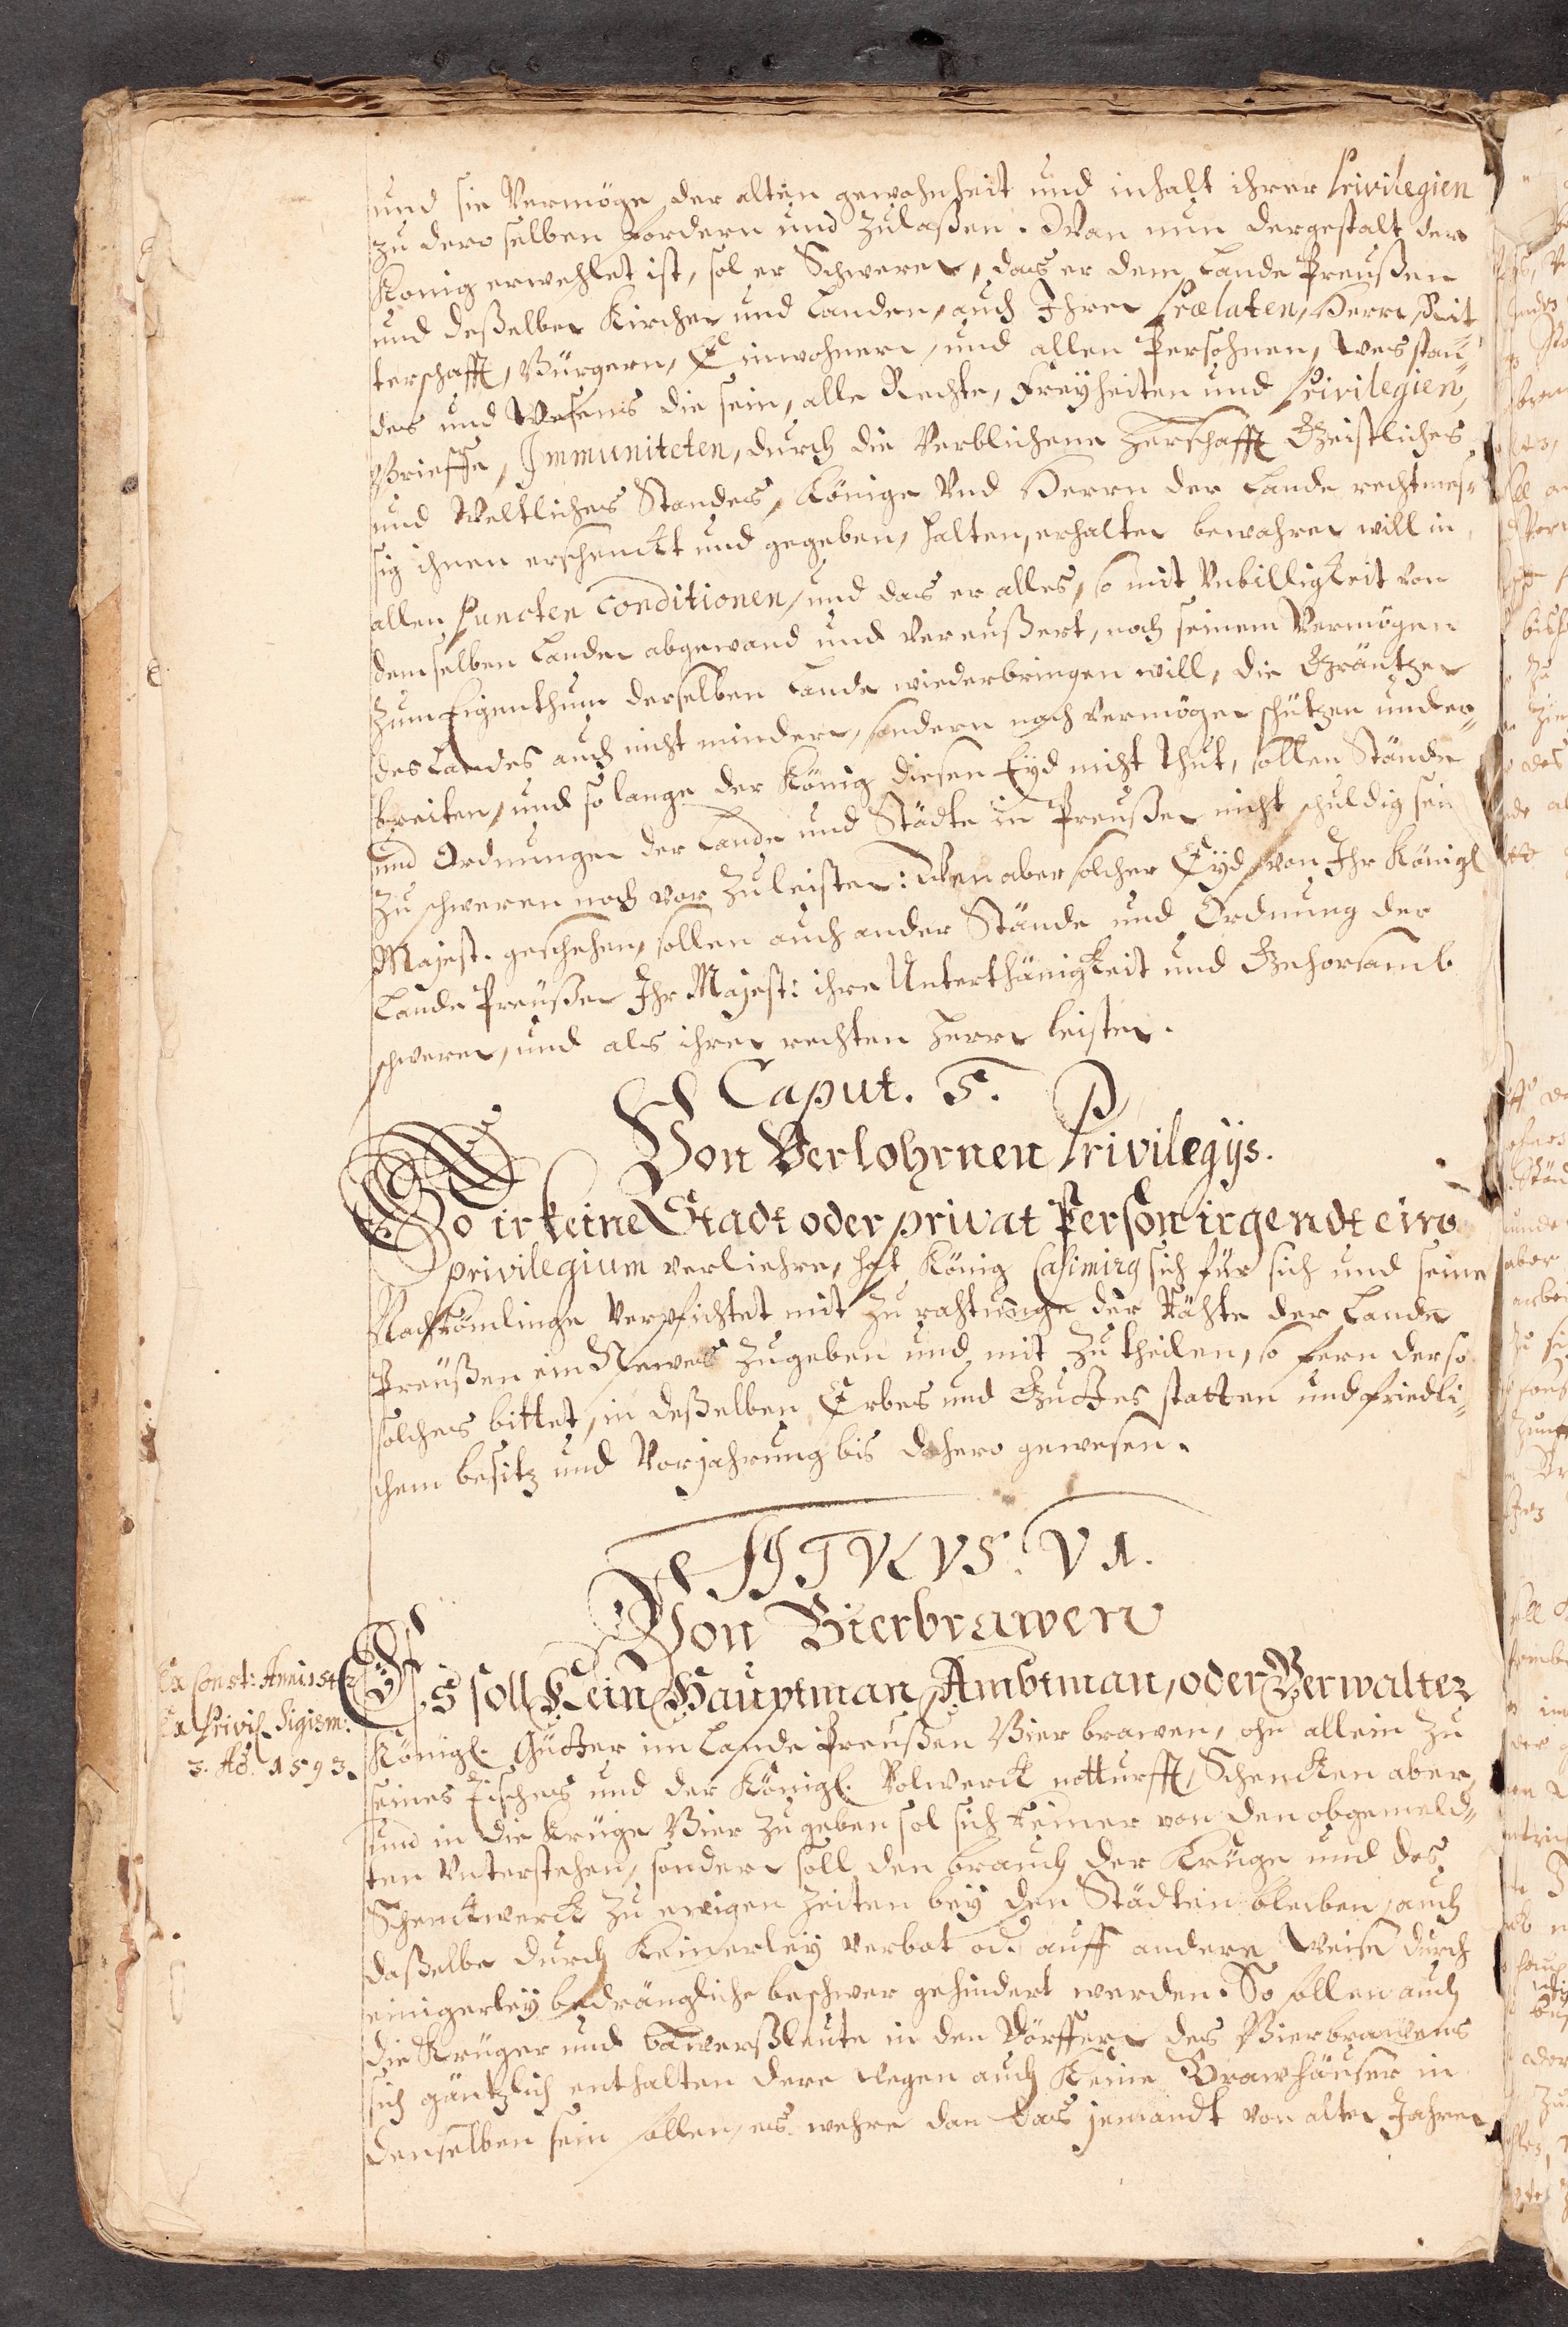 und sie Vermöge der alten gewohnheit und inhalt ihrer Privilegien
zu dero selben fordern und zulaßen. Wan nun dergestalt der
König erwehlet ist, sol er Schweren, das er dem Lande Preußen
und deßelben Kirchen und Landen, auch Ihren Prælaten, Herrn, Rit¬
terschafft, Bürgern, Einwohnern, und allen Persohnen, wes stan¬
des und Wesens die sein, alle Rechte, Freyheiten und Privilegien,
Brieffe, Immuniteten, durch die Verblichene Herschafft Geistliches
und Weltliches Standes, Könige Vnd Herrn der Lande rechtmes¬
sig ihnen erschenckt und gegeben, halten, erhalten bewahren will in
allen Puncten Conditionen, und das er alles, so mit Vnbilligkeit von
demselben Landen abgewand und Vereußert, nach seinem Vermögen
zum Eigenthum derselben Lande wiederbringen will, die Gräntzen
des Landes auch nicht mindern, sondern nach Vermögen schützen under¬
breiten, und so lange der König diesen Eyd nicht thut, sollen Stände
und Ordnungen der Lande und Städte in Preußen nicht schuldig sein
zu schweren noch vor zuleisten: Wen aber solcher Eyd von Ihr Königl
Majest. geschehen, sollen auch ander Stände und Ordnung der
Lande Preußen Ihr Majest: ihre Unterthänigkeit und Gehorsamb
schweren, und als ihren rechten Herrn leisten.
Caput. 5.
Von Verlohrnen Privilegijs.
So irkeine Stadt oder privat Person irgendt ein
privilegium verliehre, hat König Casimirg sich für sich und seine
Nachkömlinge Verpflichtet mit zu rahtunge der Rähte der Lande
Preußen ein Newes zugeben und mit zu theilen, so fern der so
solches bittet, in deßelben Erbes und Guttes statten und friedli¬
chem besitz und Vorjahrung bis dahero gewesen.
TITVLVS. VI.
Von Bierbrawen
Ex Const: Anni 1542
Ex Privil Sigism:
3. Aõ. 1593.
Es soll Kein Hauptman, Ambtman, oder Verwalter
Königl. Gütter im Lande Preußen Bier brawen, ohn allein zu
seines Tisches und der Königl. Volwerck notturfft, Schencken aber,
und in die Krüge Bier zugeben sol sich keiner von den obgemeld¬
ten Vnterstehen, sondern soll den brauch der Krüge und des
Schenckwerck zu ewigen zeiten bey den Städten bleiben, auch
daßelbe durch Keinerley verbot od. auff andere Weise durch
einigerley bedrängliche beschwer gehindert werden. So sollen auch
die Krüger und bawersleute in den Dörffern des Bierbrawens
sich gäntzlich enthalten dere wegen auch Keine Brawhäuser in
denselben sein sollen, es wehre dan das jemandt von alten Jahren